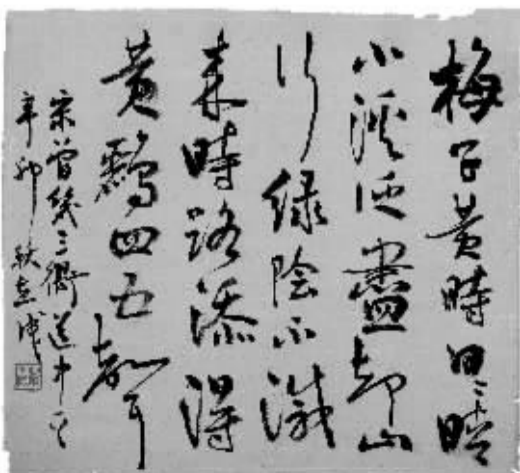 梅子黄時日〻晴
小溪泛盡却山
行緑陰不減
来時路添得
黄鸝四五聲
宋曾幾三衢道中
辛卯秋